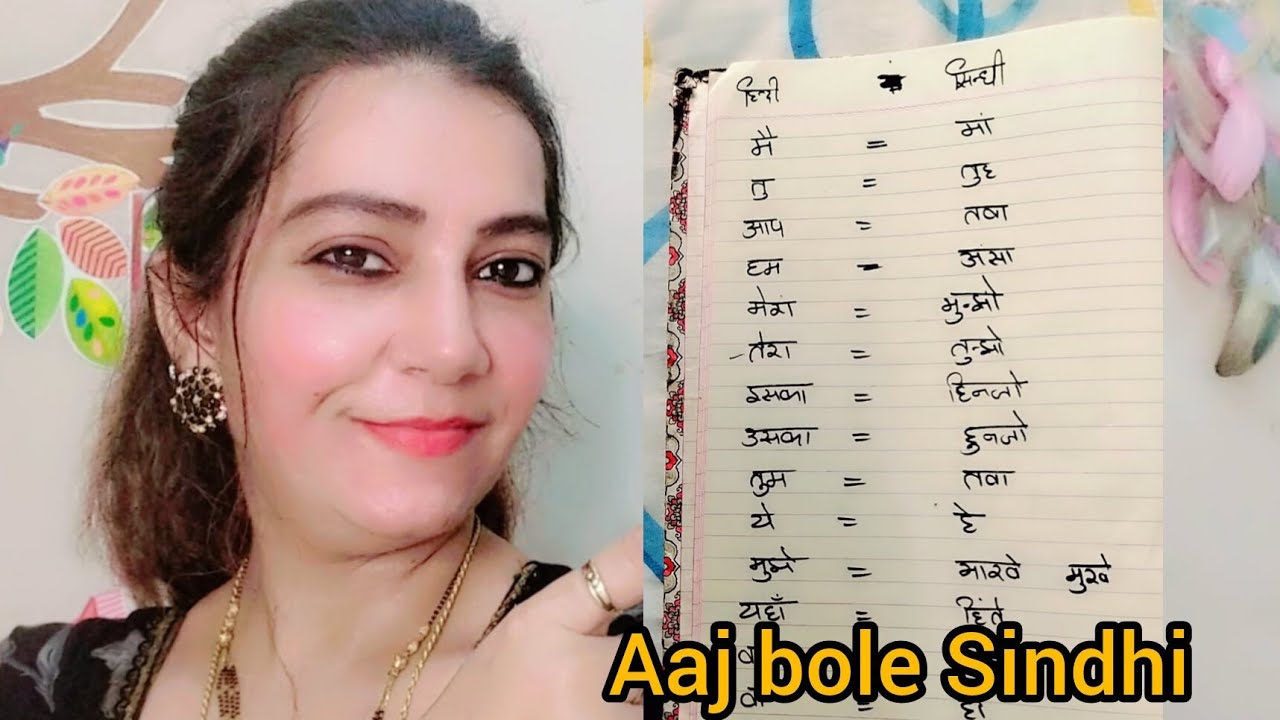 हिन्दी = सिन्धी
मै = मां
तु = तुह
आप = तवा
हम = अंसा
मेरा = मुन्झो
-तेरा = तुन्झो
इसका = हिनजो
उसका = हुनजो
तुम = तवा
ये = हे
मुझे = माखे मुखे
यहाँ = हिते
Aaj bole Sindhi